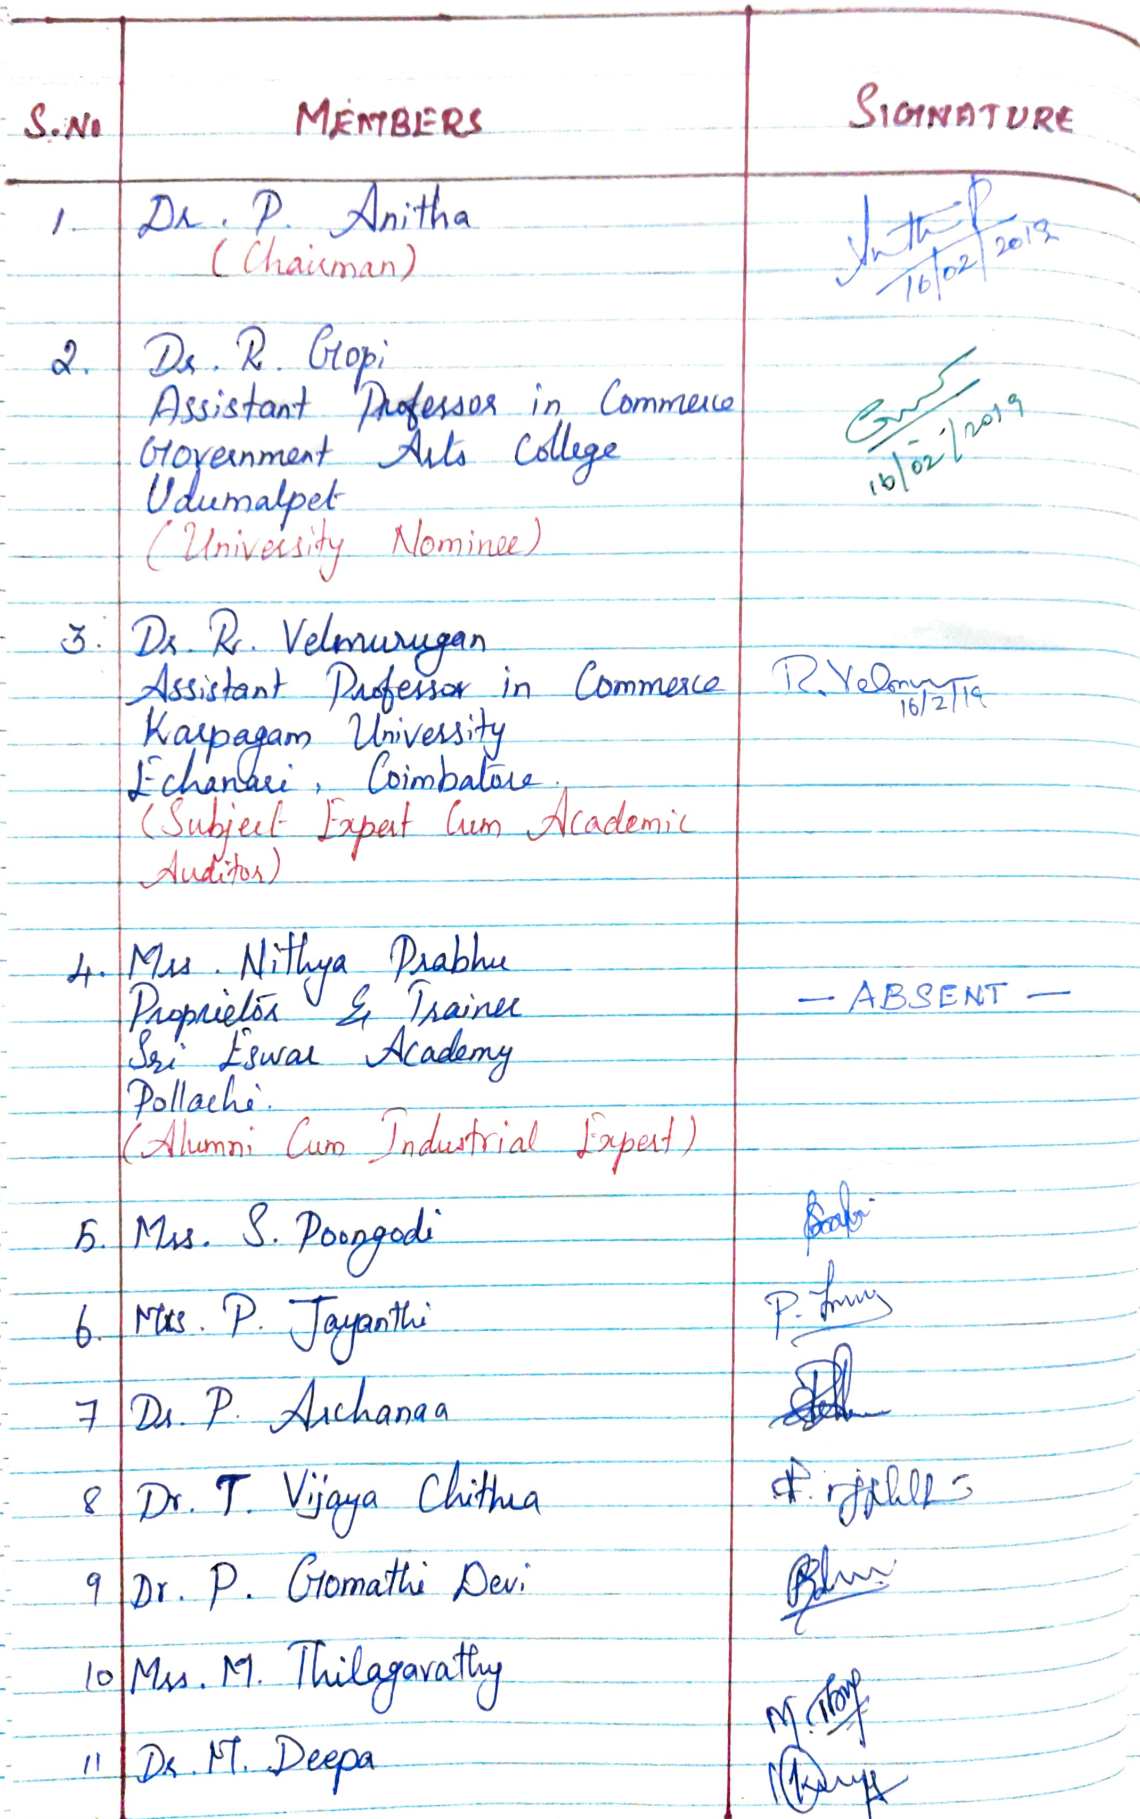 S.No MEMBERS SIGNATURE
1. Dr. P. Anitha
(Chairman)
16/02/2019
2. Dr. R. Gopi
Assistant Professor in Commerce
Government Arts College
16/02/2019
Udumalpet
(University Nominee)
3. Dr. R. Velmurugan
Assistant Professor in Commerce R. Velmur
16/2/19
Karpagam University
Echanari, Coimbatore.
(Subject Expert Cum Academic
Auditor)
4. Mrs. Nithya Prabhu
Proprietor & Trainer — ABSENT —
Sri Eswar Academy
Pollachi.
(Alumni Cum Industrial Expert)
5. Mrs. S. Poongodi
6. Mrs. P. Jayanthi P.
7 Dr. P. Archanaa
8 Dr. T. Vijaya Chithra
9 Dr. P. Gomathi Devi
10 Mrs. M. Thilagavathy
M.
11 Dr. M. Deepa